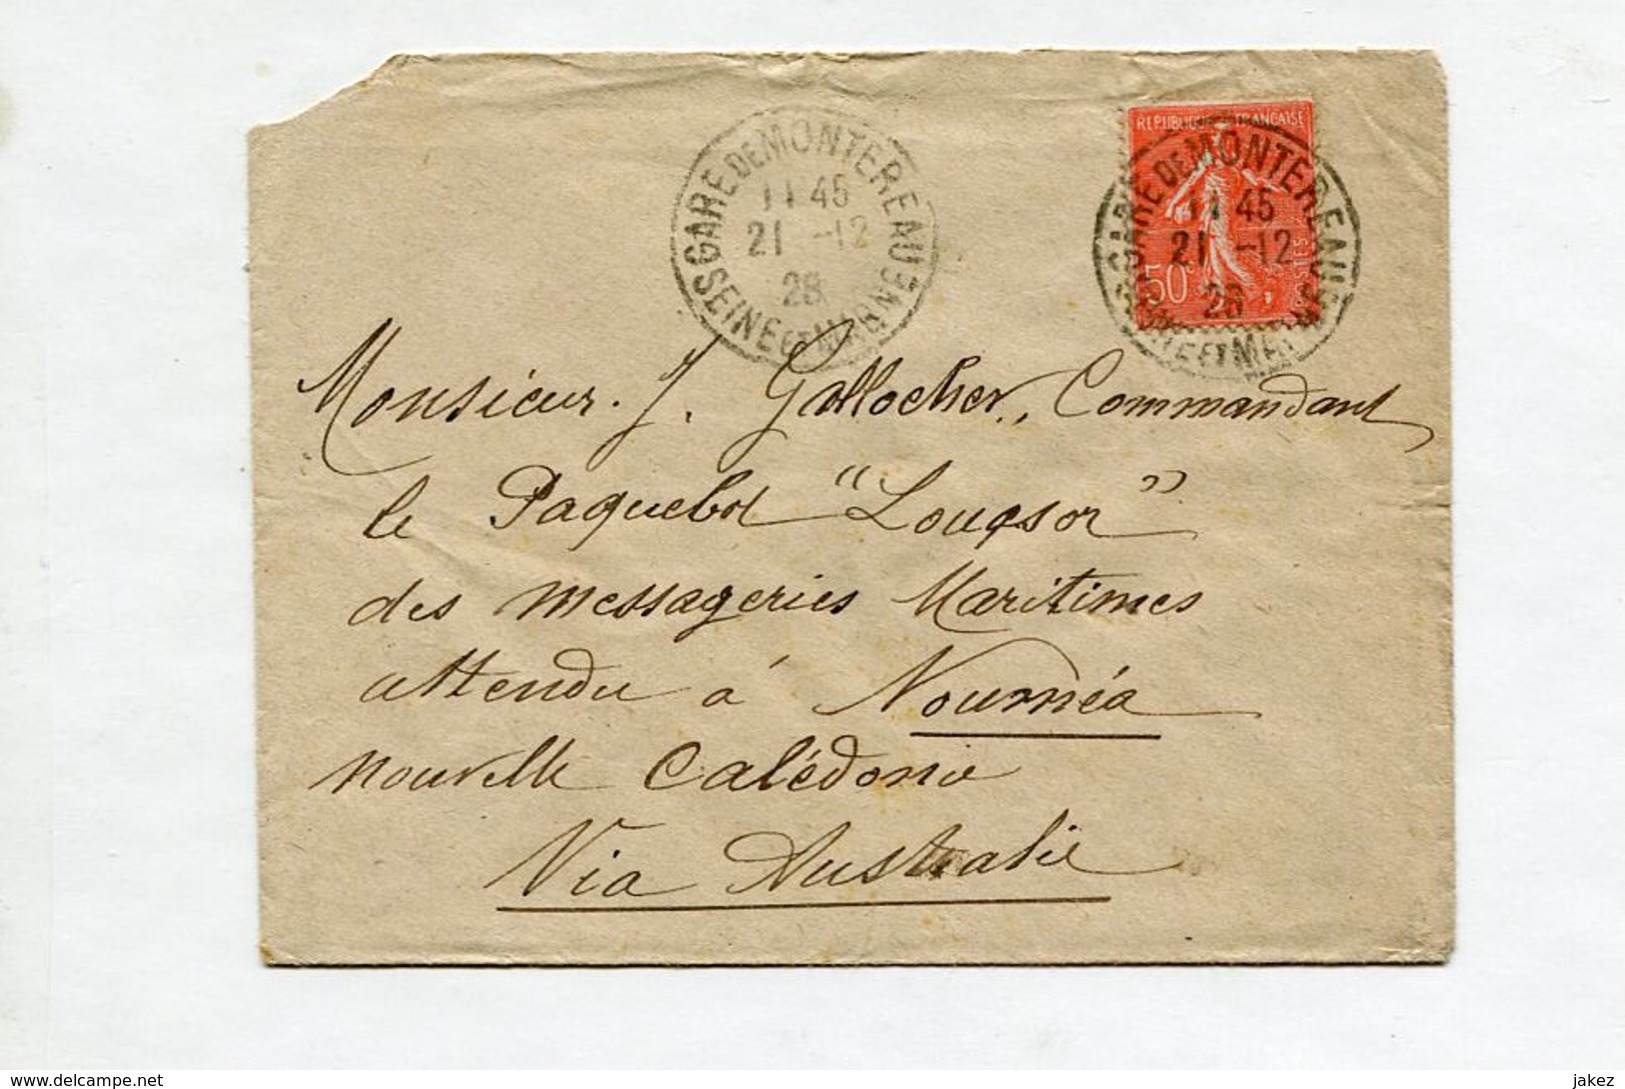 REPUBLIQUE FRANÇAISE
50c POSTES
GARE DE MONTEREAU
11 45
21 -12
28
SEINE ET MARNE
GARE DE MONTEREAU
11 45
21 -12
28
SEINE ET MARNE
Monsieur. J. Gallocher, Commandant
le Paquebot "Louqsor"
des Messageries Maritimes
attendu à Nouméa
Nouvelle Calédonie
Via Australie
jakez